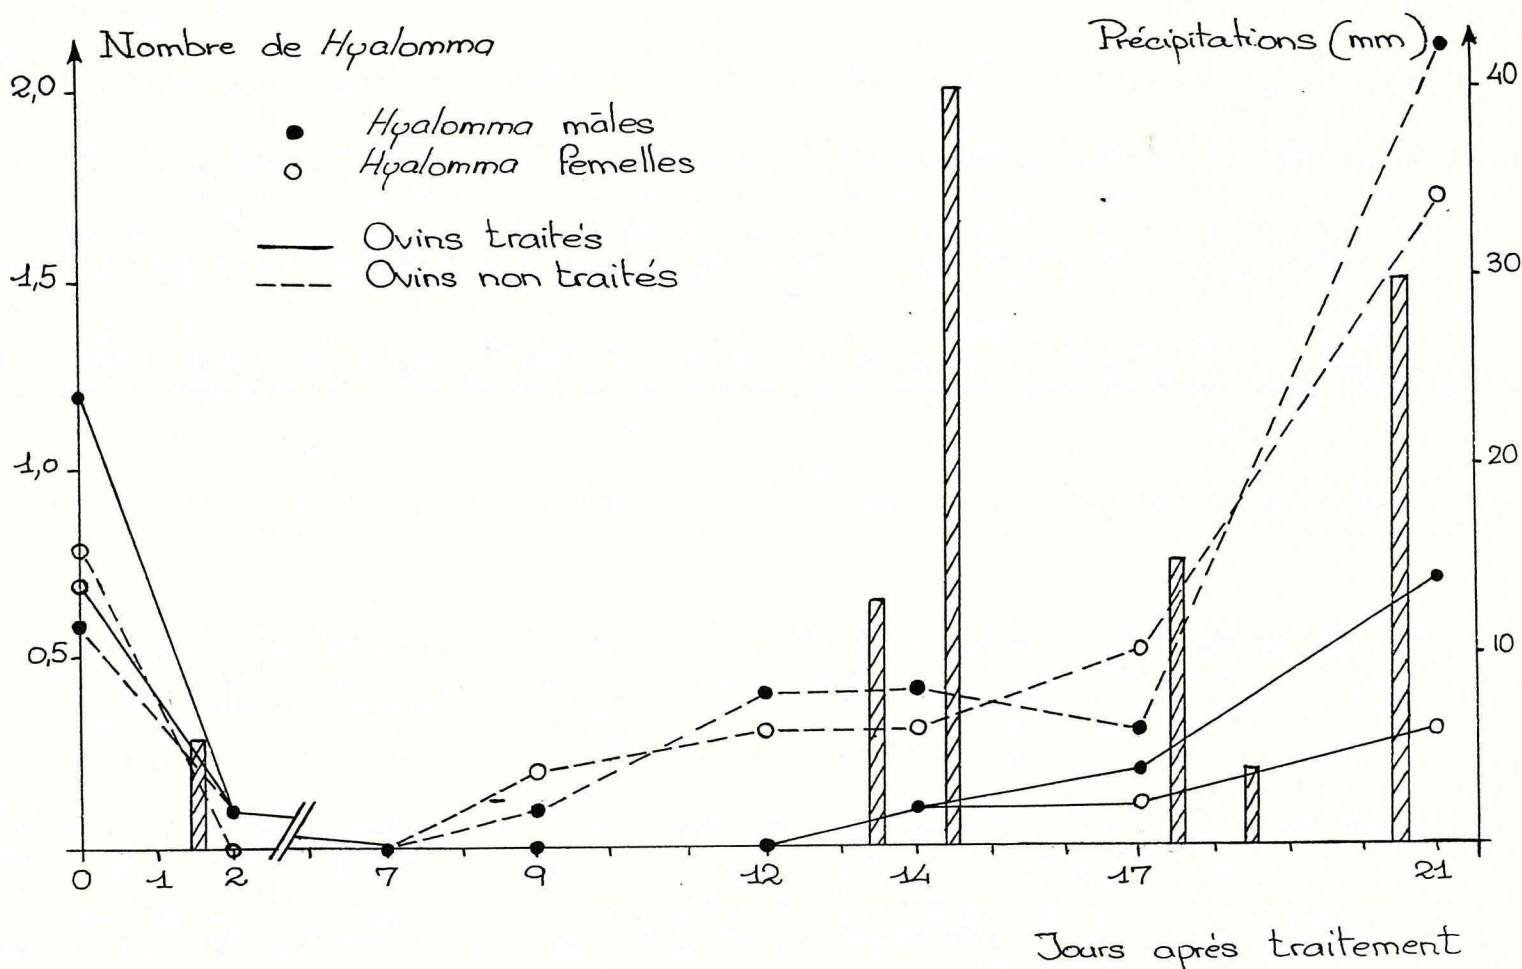 Nombre de Hyalomma
Précipitations (mm)
2,0
1,5
1,0
0,5
Hyalomma mâles
Hyalomma femelles
Ovins traités
Ovins non traités
40
30
20
10
0 1 2 7 9 12 14 17 21
Jours après traitement